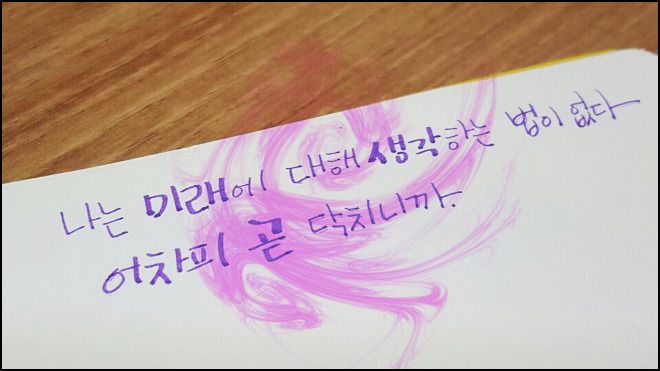 나는 미래에 대해 생각하는 법이 없다
어차피 곧 닥치니까.